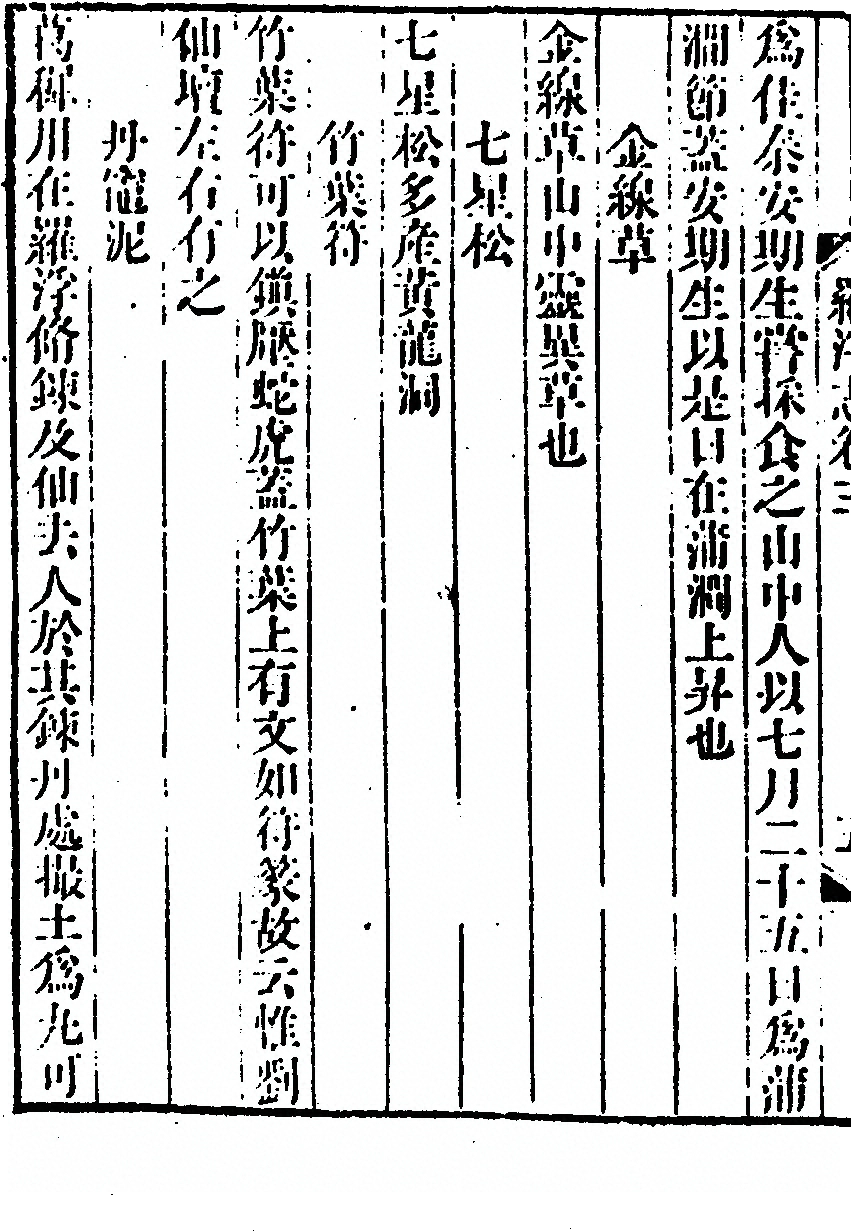 羅浮志卷三
爲佳泰安期生嘗採食之山中人以七月二十五日爲蒲
澗節蓋安期生以是日在蒲澗上昇也
金線草
金線草山中靈異草也
七星松
七星松多產黃龍洞
竹葉符
竹葉符可以鎮壓蛇虎蓋竹葉上有文如符篆故云惟劉
仙壇左右有之
丹竈泥
葛稚川在羅浮脩鍊及仙去人於其鍊丹處撮土爲丸可